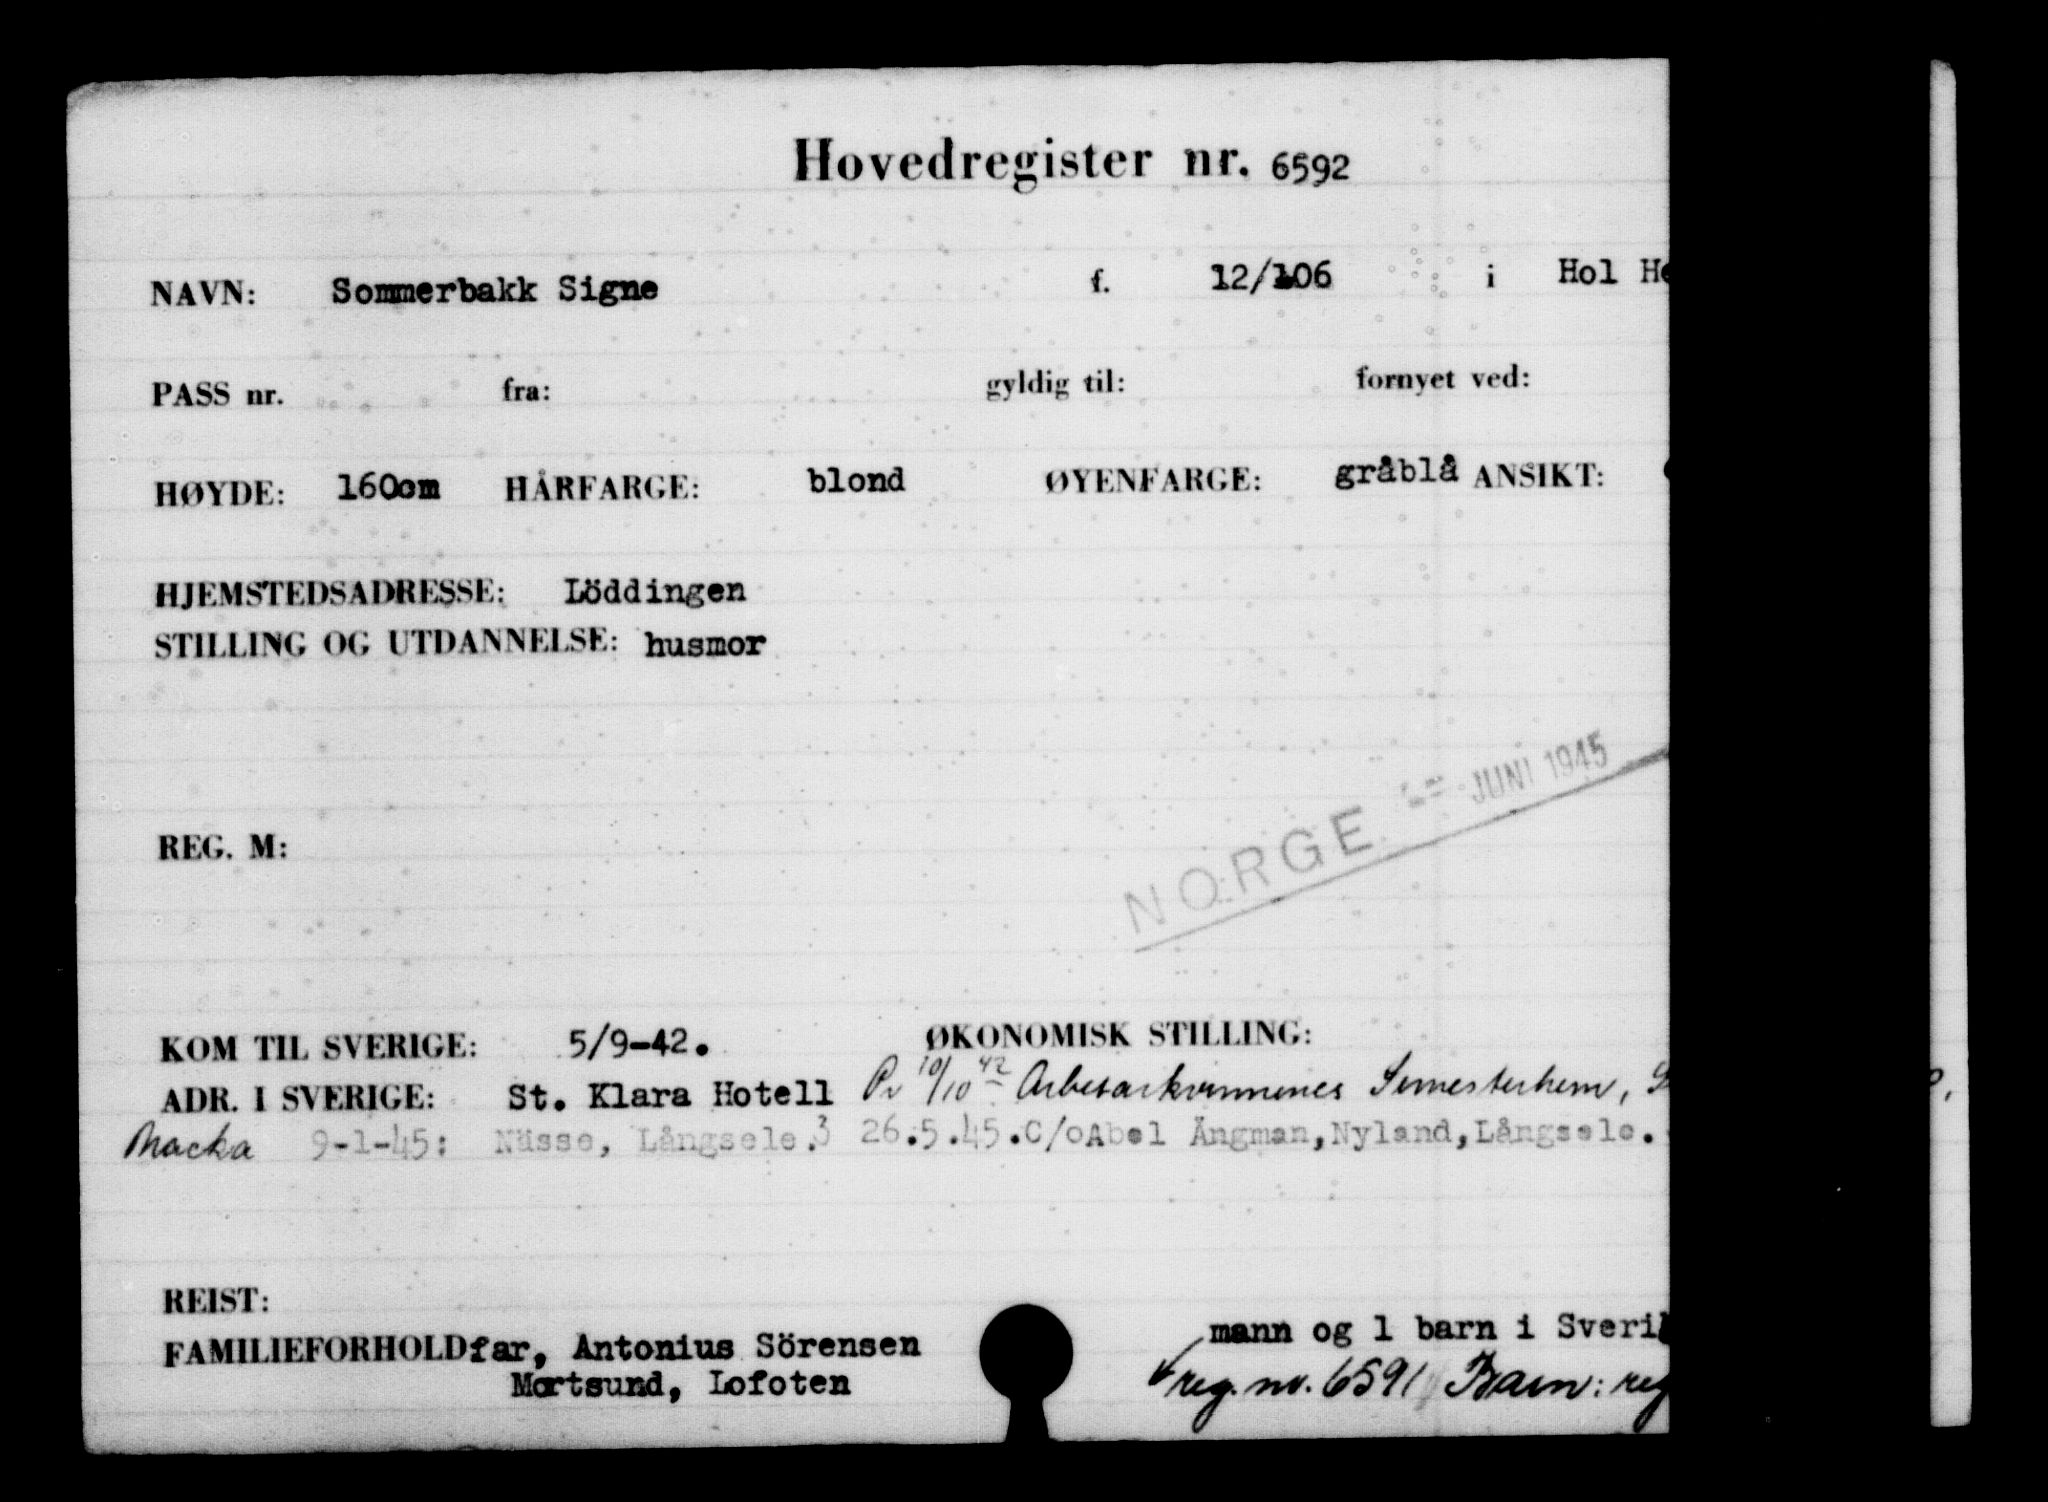 Hovedregister nr. 6592
NAVN: Sommerbakk Signe f. 12/106 i Hol
PASS nr. fra: gyldig til: fornyet ved:
HØYDE: 160cm HÅRFARGE: blond ØYENFARGE: gråblå ANSIKT:
HJEMSTEDSADRESSE: Löddingen
STILLING OG UTDANNELSE: husmor
JUNI 1945
NORGE
REG. M:
KOM TIL SVERIGE: 5/9-42. ØKONOMISK STILLING:
ADR. I SVERIGE: St. Klara Hotell Pr 10/10 42 Arbetarkvinnenes Semesterhem,
Nacka 9-1-45: Nässe, Långsele. 26.5.45. C/o Abel Ängman, Nyland, Långsele.
REIST:
mann og 1 barn i Sveri
FAMILIEFORHOLD far, Antonius Sörensen
Mortsund, Lofoten reg. nr. 6591 Barn: reg